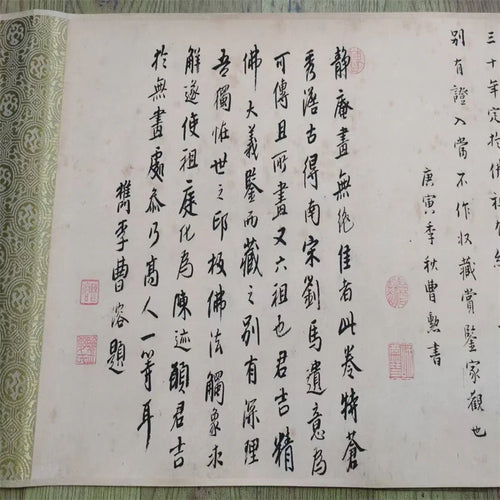 三十年定於
別有證入當不作收藏賞鑒家觀也
庚寅季秋曹勳書
靜庵畫無絕佳者此卷特蒼
秀澹古得南宋劉馬遺意為
可傳且所畫又六祖也君吉精
佛大義鑒而藏之別有深理
吾獨怪世之印板佛法觸象求
解遂使祖庭化為陳迹願君吉
於無畫處叅乃高人一等耳
檇李曹溶題